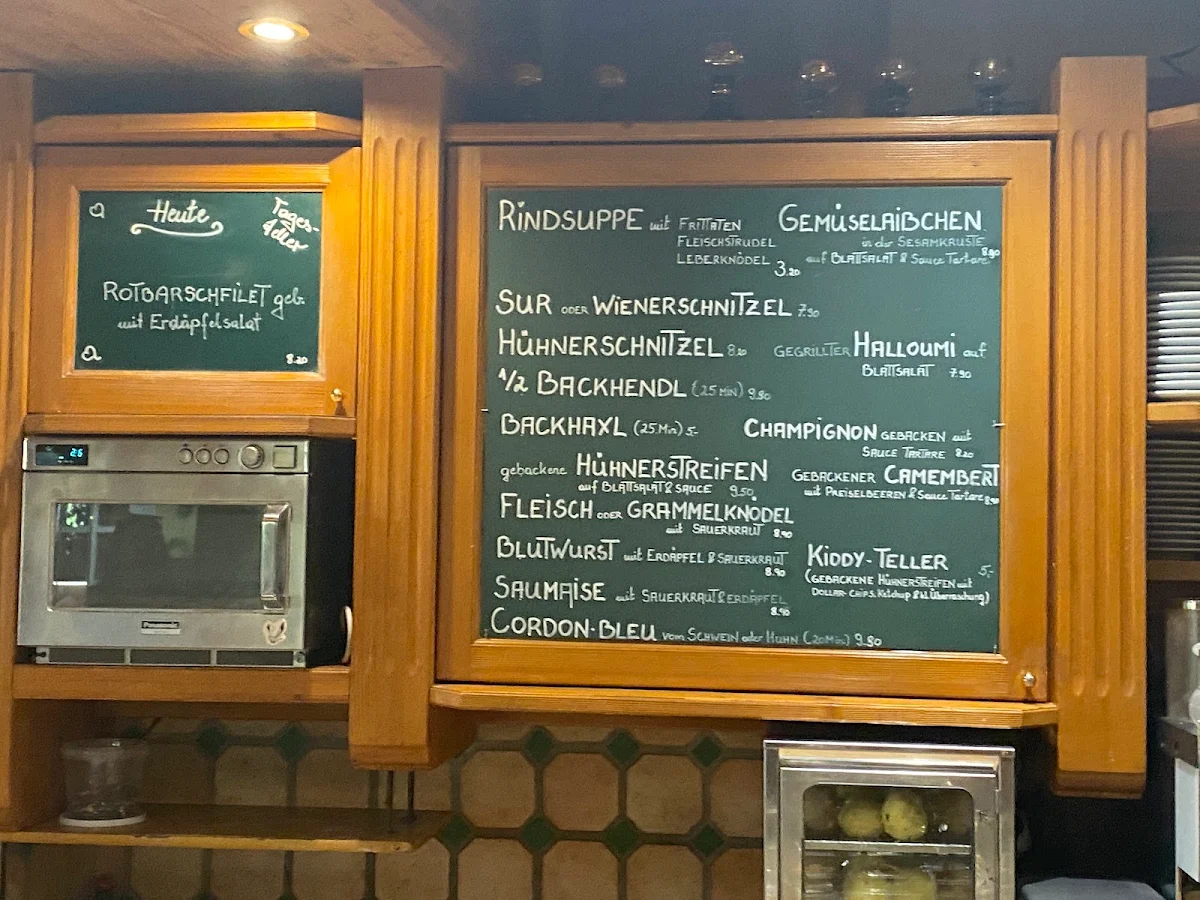 Heute
Tages-
Adler
ROTBARSCHFILET geb.
mit Erdäpfelsalat
8.20
RINDSUPPE mit FRITTATEN
FLEISCHSTRUDEL
LEBERKNÖDEL 3.20
SUR ODER WIENERSCHNITZEL 7.90
HÜHNERSCHNITZEL 8.20
1/2 BACKHENDL (25 MIN) 9.80
BACKHAXL (25 Min) 5,-
gebackene HÜHNERSTREIFEN
auf BLATTSALAT & SAUCE 9.50
FLEISCH ODER GRAMMELKNÖDEL
mit SAUERKRAUT 8.90
BLUTWURST mit ERDÄPFEL & SAUERKRAUT
8.90
SAUMAISE mit SAUERKRAUT & ERDÄPFEL
8.90
CORDON-BLEU vom SCHWEIN oder HUHN (20 Min) 9.80
GEMÜSELAIBCHEN
in der SESAMKRUSTE
auf BLATTSALAT & Sauce Tartare 8.90
GEGRILLTER HALLOUMI auf
BLATTSALAT 7.90
CHAMPIGNON GEBACKEN mit
SAUCE TARTARE 8.20
GEBACKENER CAMEMBERT
mit PREISELBEEREN & Sauce Tartare 8.90
KIDDY-TELLER 5,-
(GEBACKENE HÜHNERSTREIFEN mit
DOLLAR-CHIPS, Ketchup & kl. Überraschung)
26
Panasonic